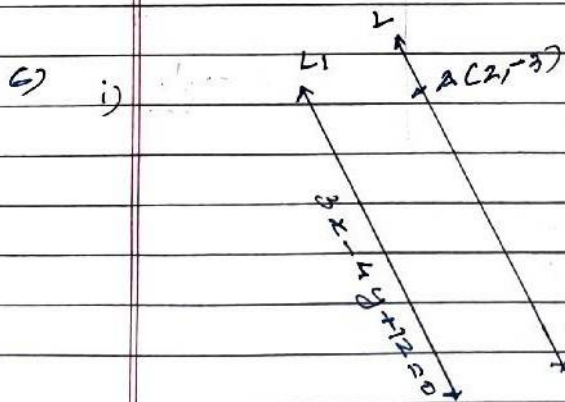 6) i)
L
L1
A(2,-3)
3x-4y+12=0